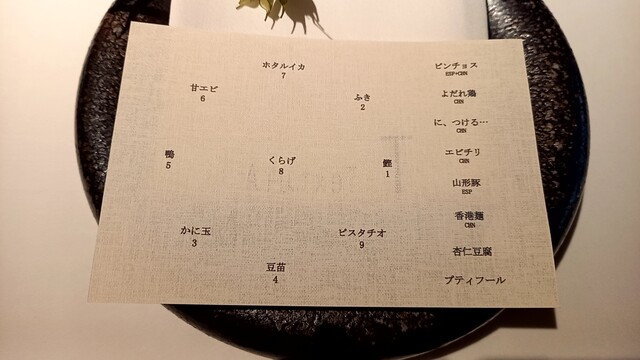 ホタルイカ
7
甘エビ
6
ふき
2
鴨
5
くらげ
8
鰹
1
かに玉
3
ピスタチオ
9
豆苗
4
ピンチョス
ESP+CHN
よだれ鶏
CHN
に、つける…
CHN
エビチリ
CHN
山形豚
ESP
香港麺
CHN
杏仁豆腐
プティフール